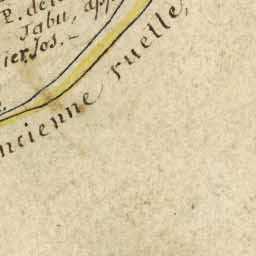 P. de
Jabu, app
ier Jos. -
ncienne ruelle,